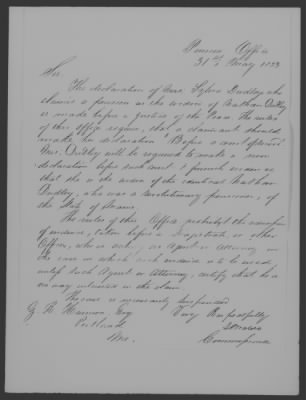 Pension Office
31st May 1853
Sir.
The declaration of Mrs. Sylvia Dudley who
claims a pension as the widow of Nathan Dudley
is made before a Justice of the Peace. The rules
of this office require, that a claimant should
make her declaration "Before a court of record
Mrs. Dudley will be required to make a new
declaration before such court & furnish evidence
that she is the widow of the identical Nathan
Dudley, who was a Revolutionary pensioner, of
the State of Maine.
The rules of this Office, prohibit the
of evidence, taken before a Magistrate or other
Officer, who is acting as Agent or Attorney in
the case in which such evidence is to be used,
unless such Agent or Attorney, certify that he is
no way interested in the claim.
The case is necessarily suspended
Very Respectfully
G. R. Esq
Portland
Me.
Commissioner